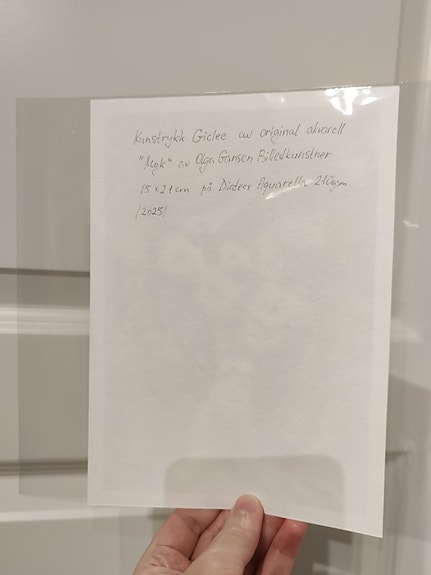 Kunstrykk Giclee av original akvarell
"Myk" av Olga Gansen Billedkunstner
15 x 21 cm på Aquarella 210gsm
/2025/